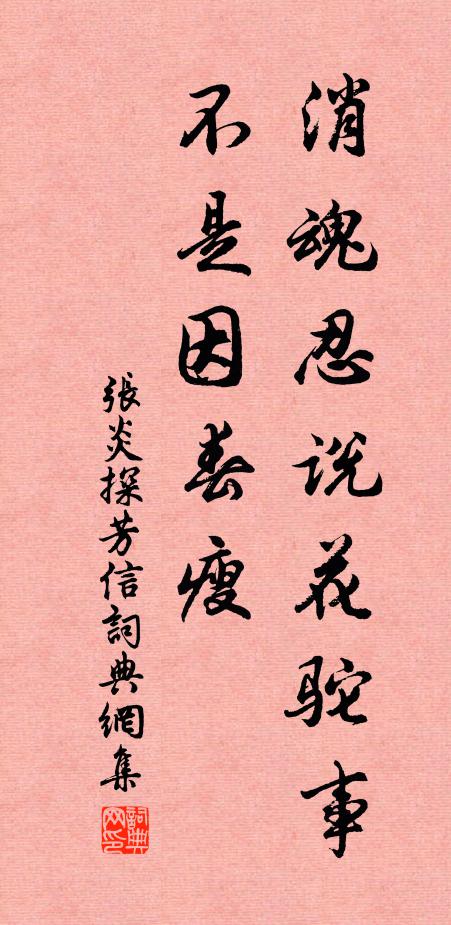 消魂忍说花驼事
不是因春瘦
張炎探芳信詞典網集
詞典网印